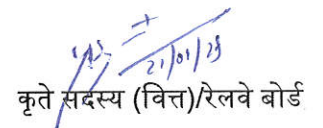 21/01/25
कृते सदस्य (वित्त)/रेलवे बोर्ड